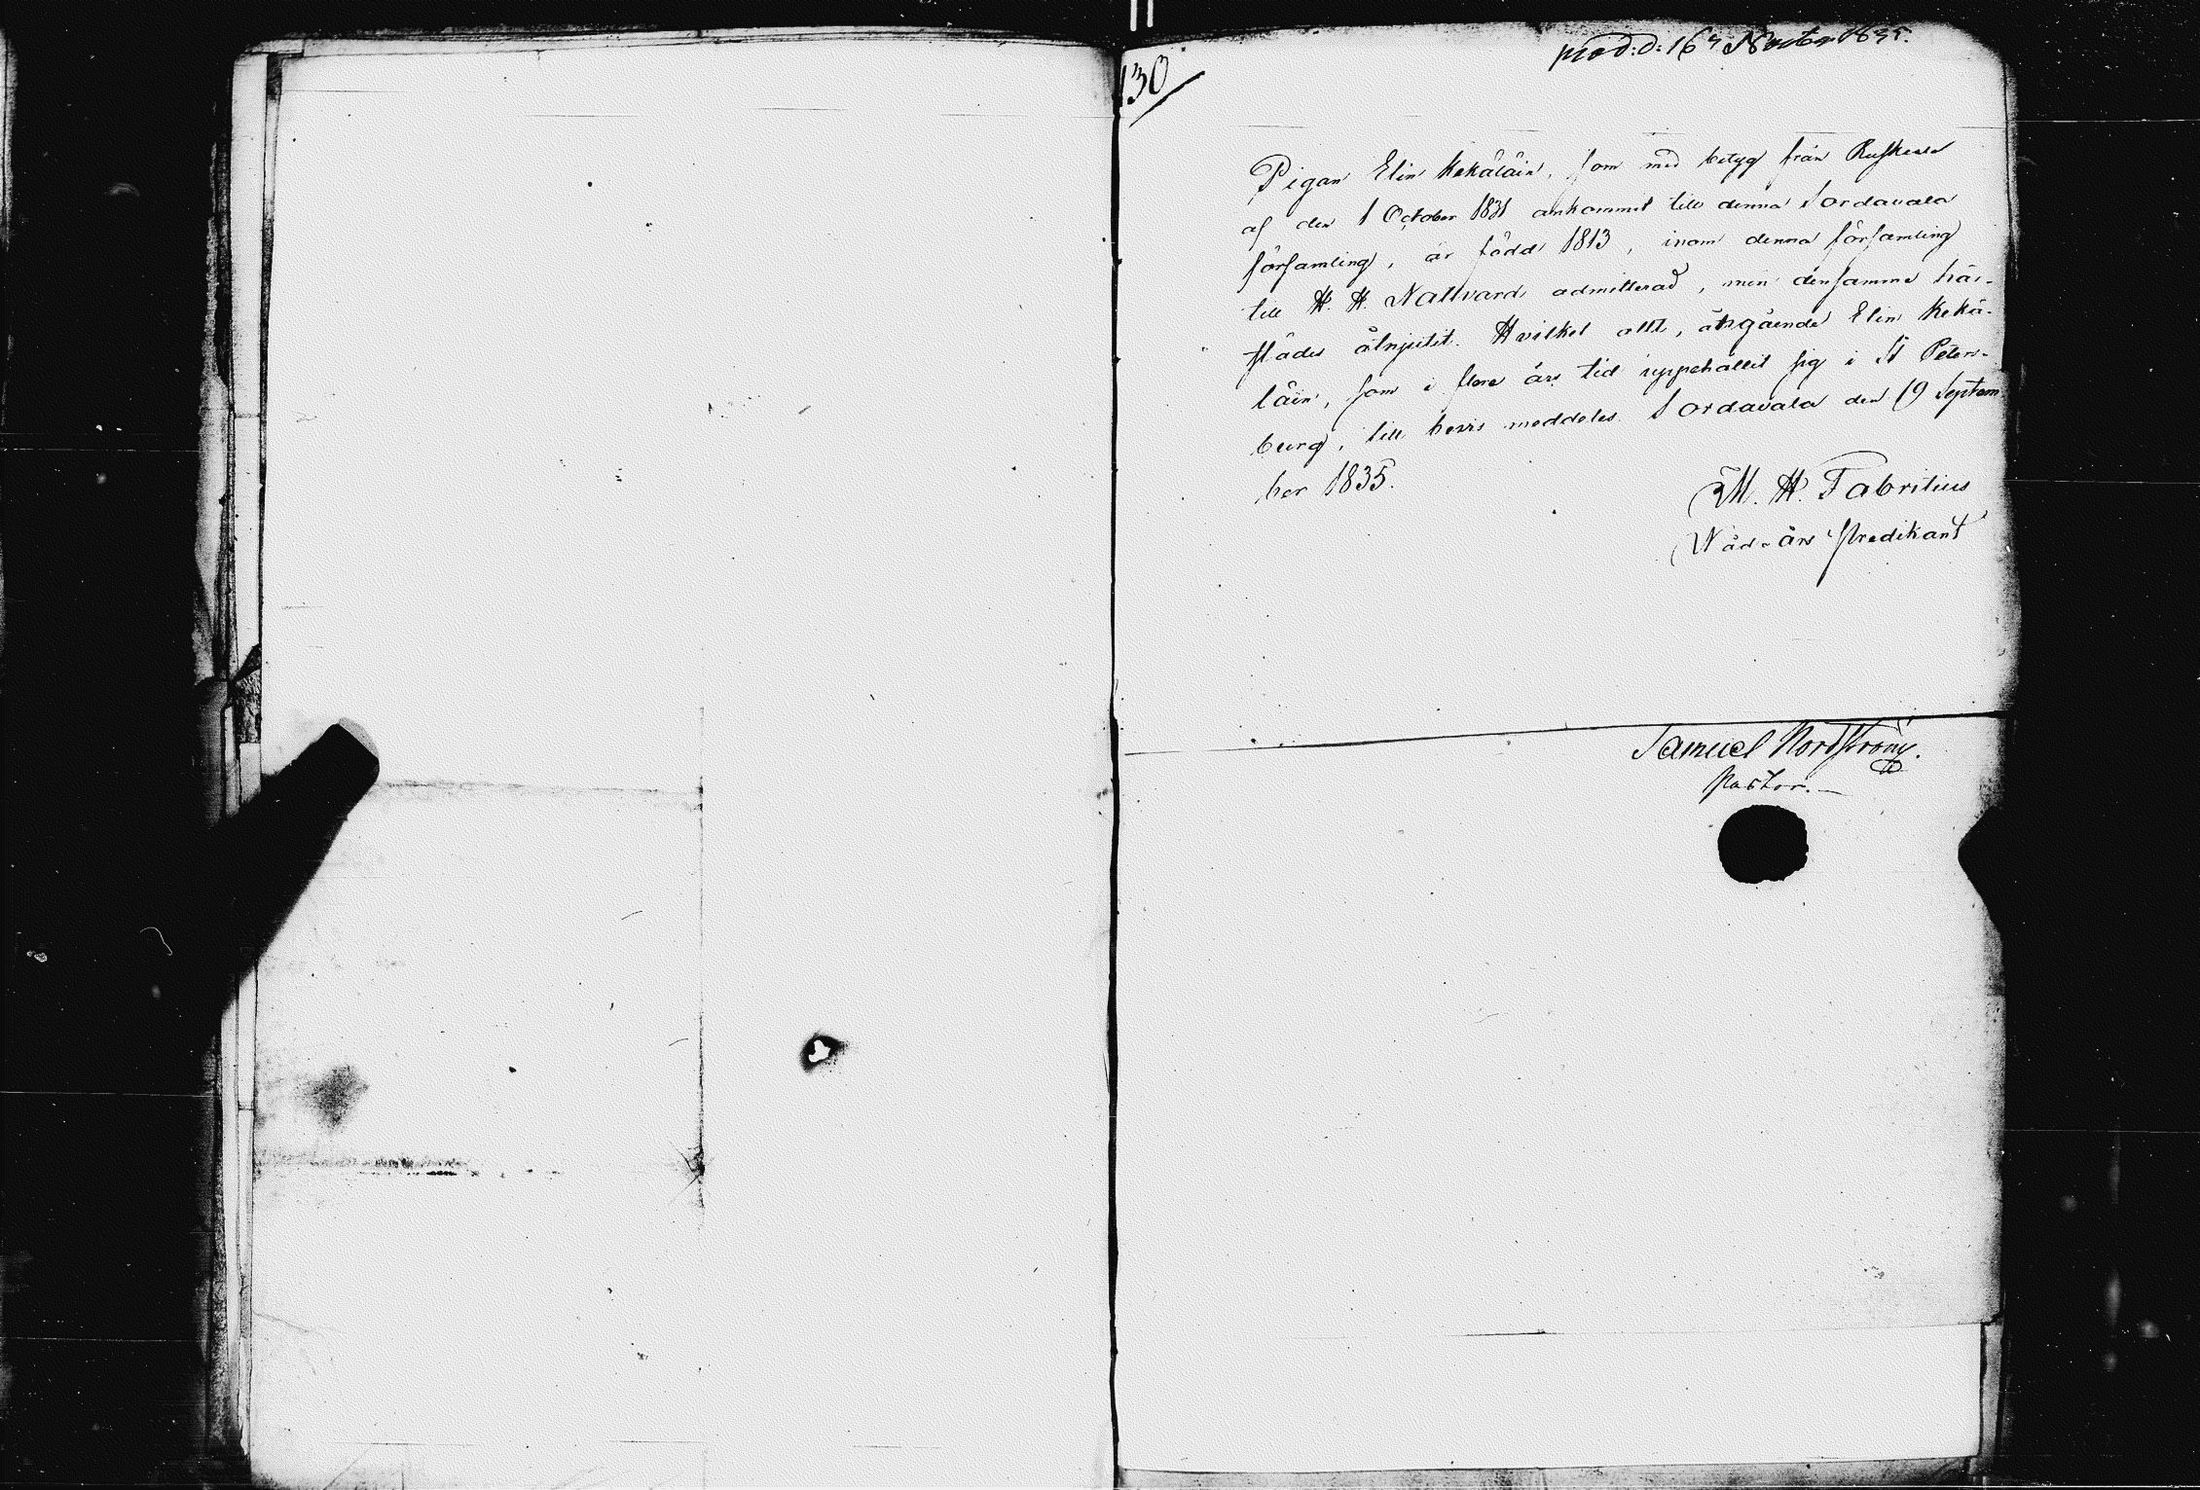 prod: d: 16 Novbr 1835.
130
Pigan Elin Kekäläin, som med betyg från Ruskeala
af den 1 October 1831 ankommit till denna Sordavala
församling, är född 1813, inom denna församling
till H. H. Nattvard admitterad, men densamma här-
städes åtnjutit. Hvilket allt, åtgående Elin Kekä-
läin, som i flere års tid uppehållit sig i St Peters-
burg, till bevis meddeles. Sordavala den 19 Septem-
ber 1835.
M. H. Fabritius
Nåd-års Predikant
Samuel Nordström.
Pastor.